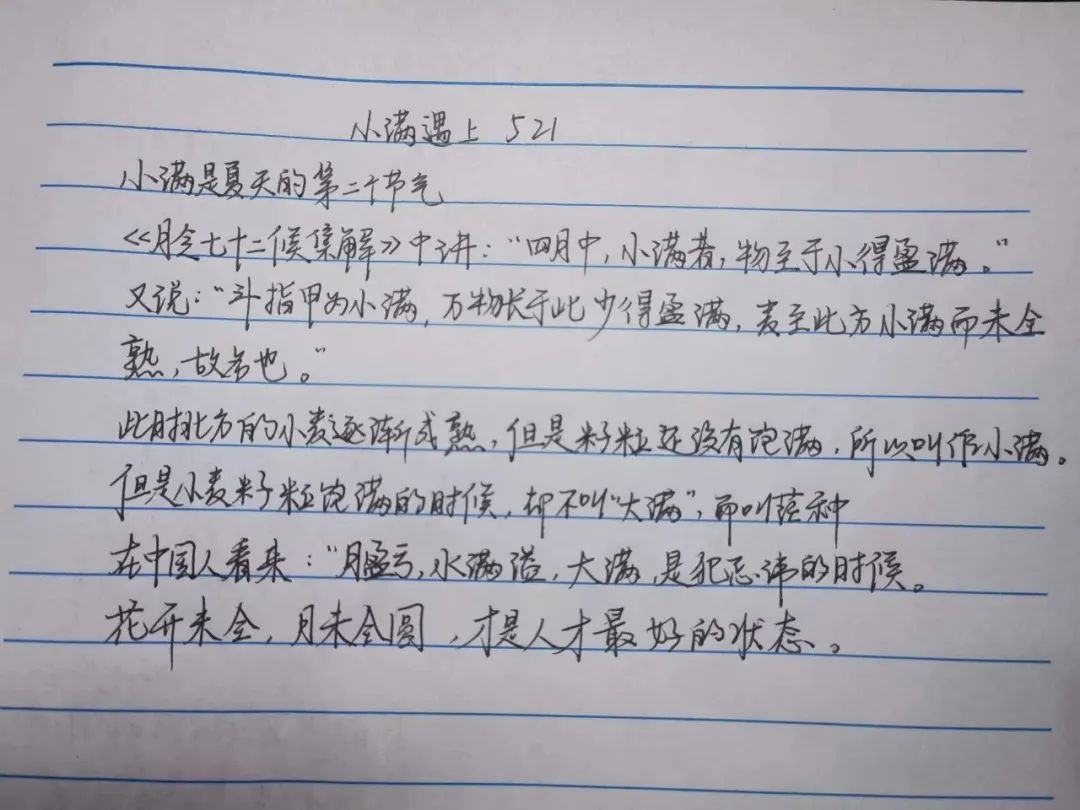 小满遇上 521
小满是夏天的第二个节气
《月令七十二候集解》中讲：“四月中，小满者，物至于小得盈满。”
又说：“斗指甲为小满，万物长于此少得盈满，麦至此方小满而未全
熟，故名也。”
此时北方的小麦逐渐成熟，但是籽粒还没有饱满，所以叫作小满。
但是小麦籽粒饱满的时候，却不叫“大满”，而叫芒种
在中国人看来：“月盈亏，水满溢，大满，是犯忌讳的时候。
花开未全，月未全圆，才是人才最好的状态。